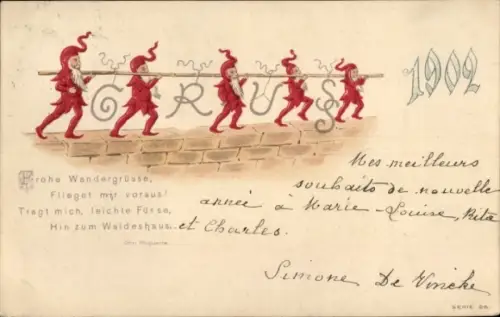 GRUSS
1902
Frohe Wandergrüsse,
Flieget mir voraus!
Tragt mich, leichte Füsse,
Hin zum Waldeshaus.
Mes meilleurs
souhaits de nouvelle
année à Marie-Louise, Rita
et Charles.
Simone De Vincke
SERIE